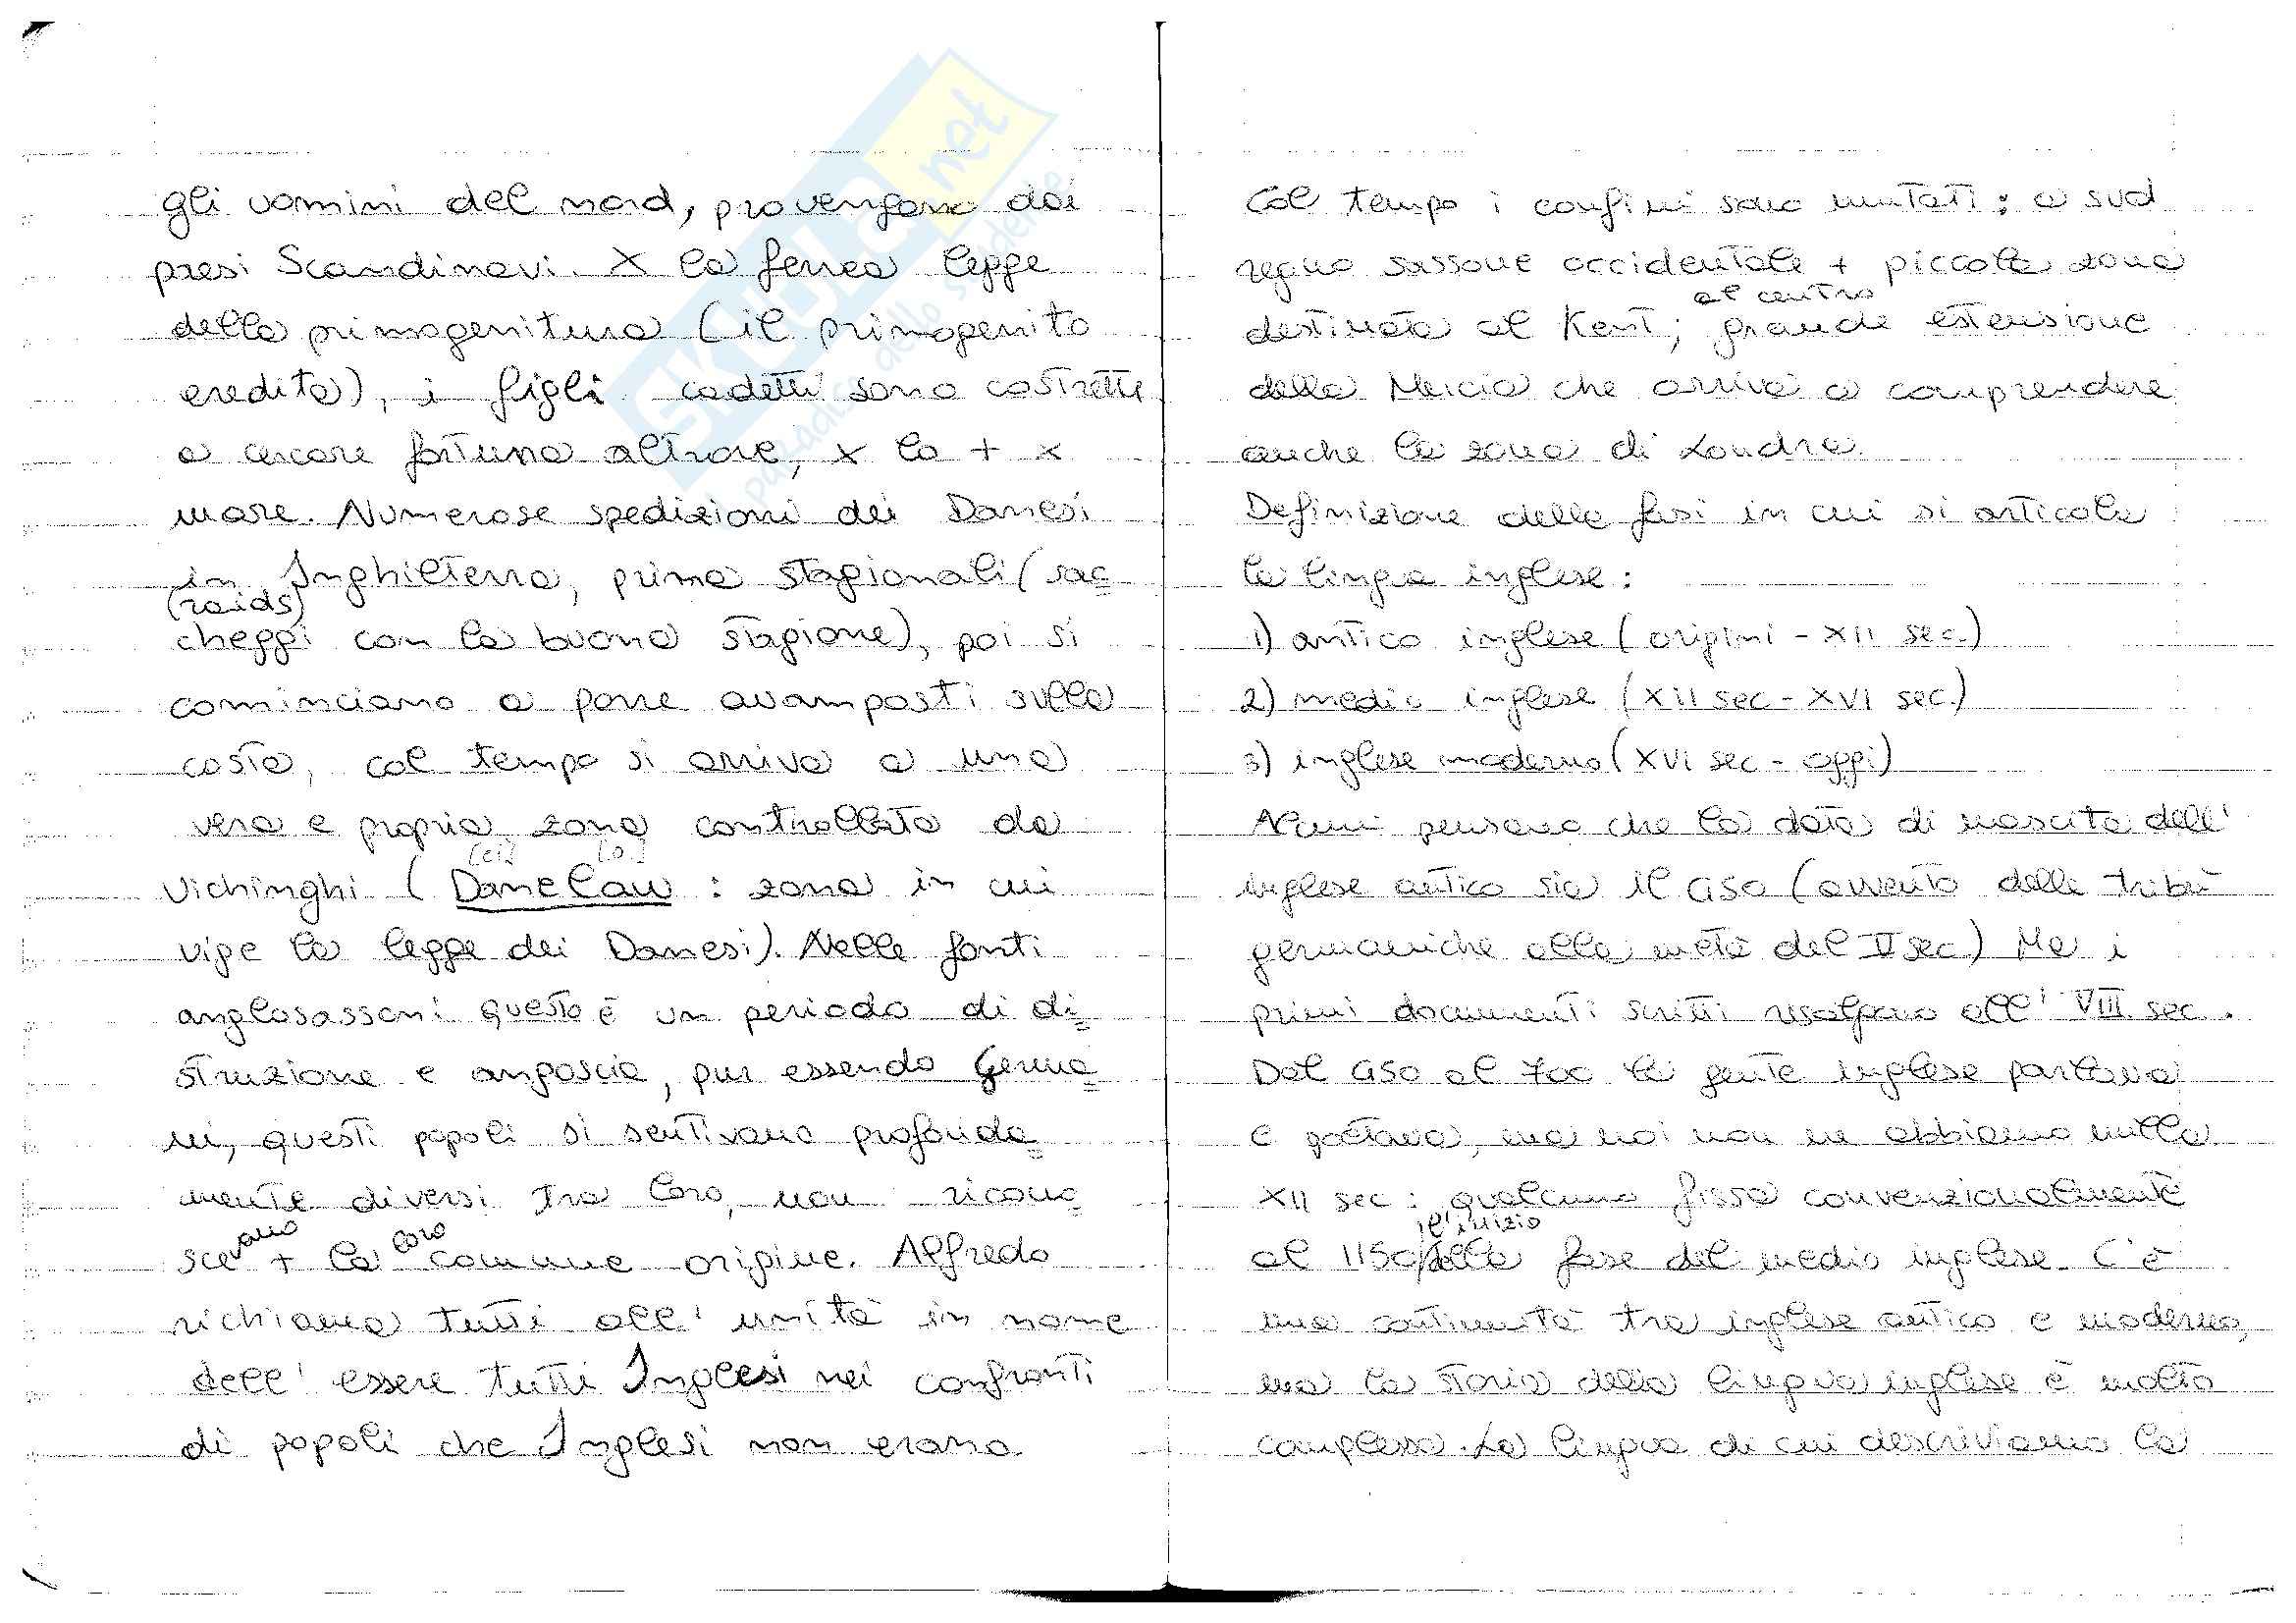 gli uomini del nord, provengono dai
paesi Scandinavi. X la ferrea legge
della primogenitura (il primogenito
eredita), i figli cadetti sono costretti
a cercare fortuna altrove, x lo + x
mare. Numerose spedizioni dei Danesi
in Inghilterra, prima stagionali (sac=
(raids)
cheggi con la buona stagione), poi si
cominciano a porre avamposti sulla
costa, col tempo si arriva a una
vera e propria zona controllata da
[ei] [o:]
Vichinghi (Danelaw : zona in cui
vige la legge dei Danesi). Nelle fonti
anglosassoni questo è un periodo di di=
struzione e angoscia, pur essendo Germa=
ni, questi popoli si sentivano profonda=
mente diversi tra loro, non ricono=
scevano + la loro comune origine. Alfredo
richiama tutti all' unità in nome
dell' essere tutti Inglesi nei confronti
di popoli che Inglesi non erano.
Col tempo i confini sono mutati: a sud
regno sassone occidentale + piccola zona
al centro
destinata al Kent; grande estensione
della Mercia che arriva a comprendere
anche la zona di Londra.
Definizione delle fasi in cui si articola
la lingua inglese:
1) antico inglese (origini - XII sec.)
2) medio inglese (XII sec - XVI sec.)
3) inglese moderno (XVI sec - oggi)
Alcuni pensano che la data di nascita dell'
inglese antico sia il 450 (avvento delle tribù
germaniche alla metà del sec) Ma i
primi documenti scritti risalgono all' VIII sec.
Dal 450 al 700 la gente inglese parlava
e poetava, ma noi non ne abbiamo nulla
XII sec: qualcuno fissa convenzionalmente
l'inizio
al 1150 della fase del medio inglese. C'è
una continuità tra inglese antico e moderno,
ma la storia della lingua inglese è molto
complessa. La lingua di cui descriviamo la
SKUOLA.net
paradiso dello studente